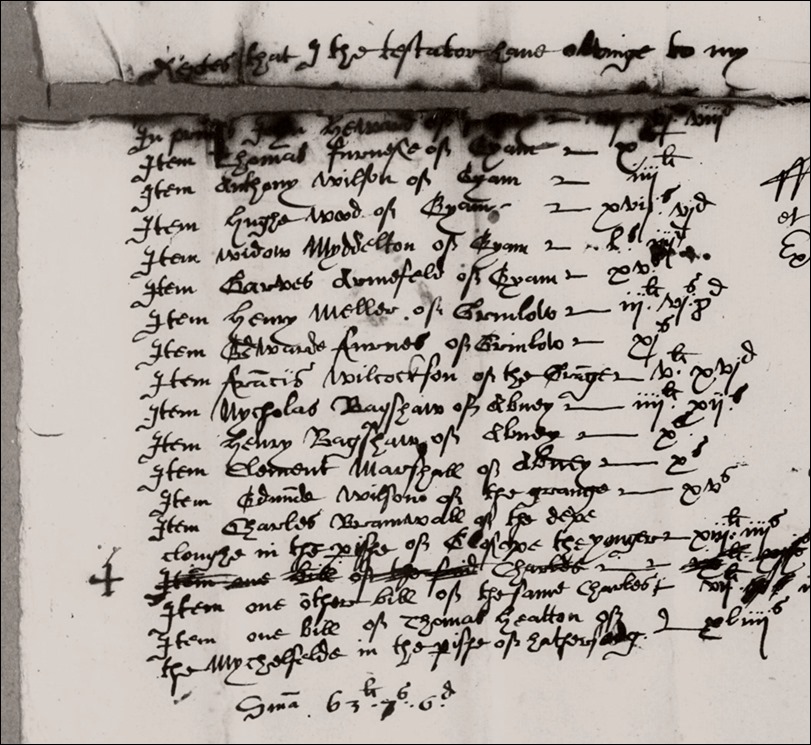 Dettes that I the testator have owinge to my
In primis Heward of viijd
Item Thomas furnese of Eyam xs
Item Anthony Wilson of Eyam iiijli
Item hughe Wood of Eyam xvijs vjd
Item widow Myddelton of Eyam ls
Item Garves Armefeld of Eyam xvs
Item henry Meller of Grinlow iijli vjs
Item Edwarde furnes of Grinlow xjs
Item francis Wilcockson of the Grange vli xvjd
Item Nycholas Bagshaw of Abney iiijli xijs
Item henry Bagshaw of Abney xs
Item Clement Marshall of Abney xs
Item Edmūde Wilson of the grange xvs
Item Charles Bramwall of the depe
cloughe in the pishe of the yonger xiiijli iiijs
Item one bill of the said Charles
Item one other bill of the same Charles vijli
Item one bill of Thomas Heatton of xliiijs
the Mychelfelde in the pishe of hathersedg
Smā 63li 7s 6d
ff
et
Ex